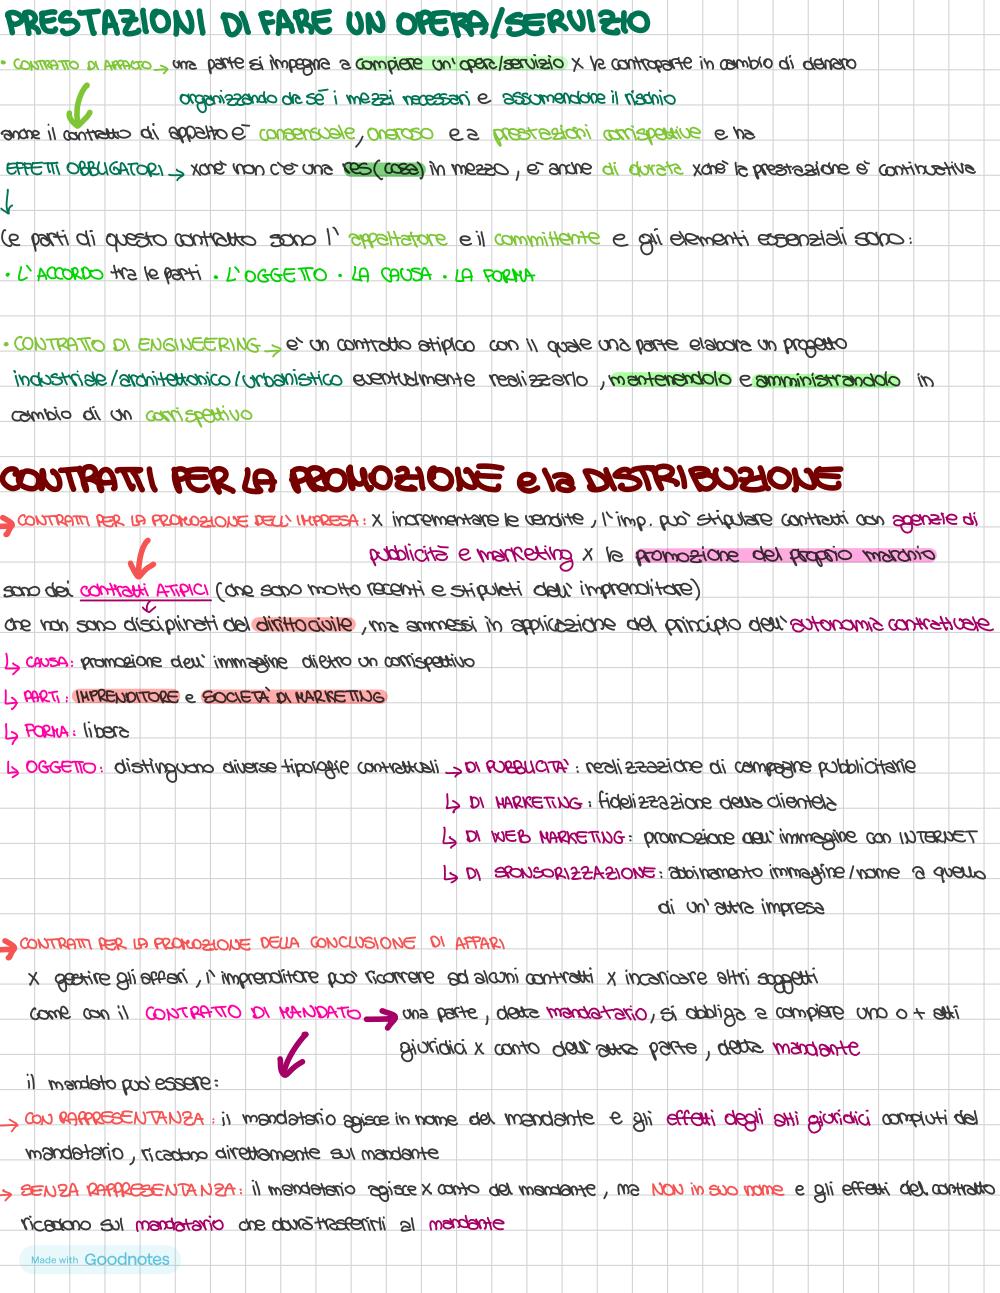 PRESTAZIONI DI FARE UN OPERA/SERVIZIO
• CONTRATTO DI APPALTO → una parte si impegna a compiere un'opera/servizio x la controparte in cambio di denaro
organizzando da sé i mezzi necessari e assumendone il rischio
anche il contratto di appalto è consensuale, oneroso e a prestazioni corrispettive e ha
EFFETTI OBBLIGATORI → xchè non c'è una res (cosa) in mezzo, è anche di durata xchè la prestazione è continuativa
Le parti di questo contratto sono l'appaltatore e il committente e gli elementi essenziali sono:
• L'ACCORDO tra le parti • L'OGGETTO • LA CAUSA • LA FORMA
• CONTRATTO DI ENGINEERING → è un contratto atipico con il quale una parte elabora un progetto
industriale/architettonico/urbanistico eventualmente realizzarlo, mantenendolo e amministrandolo in
cambio di un corrispettivo
CONTRATTI PER LA PROMOZIONE e la DISTRIBUZIONE
→ CONTRATTI PER LA PROMOZIONE DELL'IMPRESA: x incrementare le vendite, l'imp. può stipulare contratti con agenzie di
pubblicità e marketing x la promozione del proprio marchio
sono dei contratti ATIPICI (che sono molto recenti e stipulati dell'imprenditore)
che non sono disciplinati dal diritto civile, ma ammessi in applicazione del principio dell'autonomia contrattuale
↳ CAUSA: promozione dell'immagine dietro un corrispettivo
↳ PARTI: IMPRENDITORE e SOCIETÀ DI MARKETING
↳ FORMA: libera
↳ OGGETTO: distinguono diverse tipologie contrattuali → DI PUBBLICITÀ: realizzazione di campagne pubblicitarie
↳ DI MARKETING: fidelizzazione della clientela
↳ DI WEB MARKETING: promozione dell'immagine con INTERNET
↳ DI SPONSORIZZAZIONE: abbinamento immagine/nome a quello
di un'altra impresa
→ CONTRATTI PER LA PROMOZIONE DELLA CONCLUSIONE DI AFFARI
x gestire gli affari, l'imprenditore può ricorrere ad alcuni contratti x incaricare altri soggetti
come con il CONTRATTO DI MANDATO → una parte, detta mandatario, si obbliga a compiere uno o + atti
giuridici x conto dell'altra parte, detta mandante
il mandato può essere:
→ CON RAPPRESENTANZA: il mandatario agisce in nome del mandante e gli effetti degli atti giuridici compiuti dal
mandatario, ricadono direttamente sul mandante
→ SENZA RAPPRESENTANZA: il mandatario agisce x conto del mandante, ma NON in suo nome e gli effetti del contratto
ricadono sul mandatario che dovrà trasferirli al mandante
Made with Goodnotes